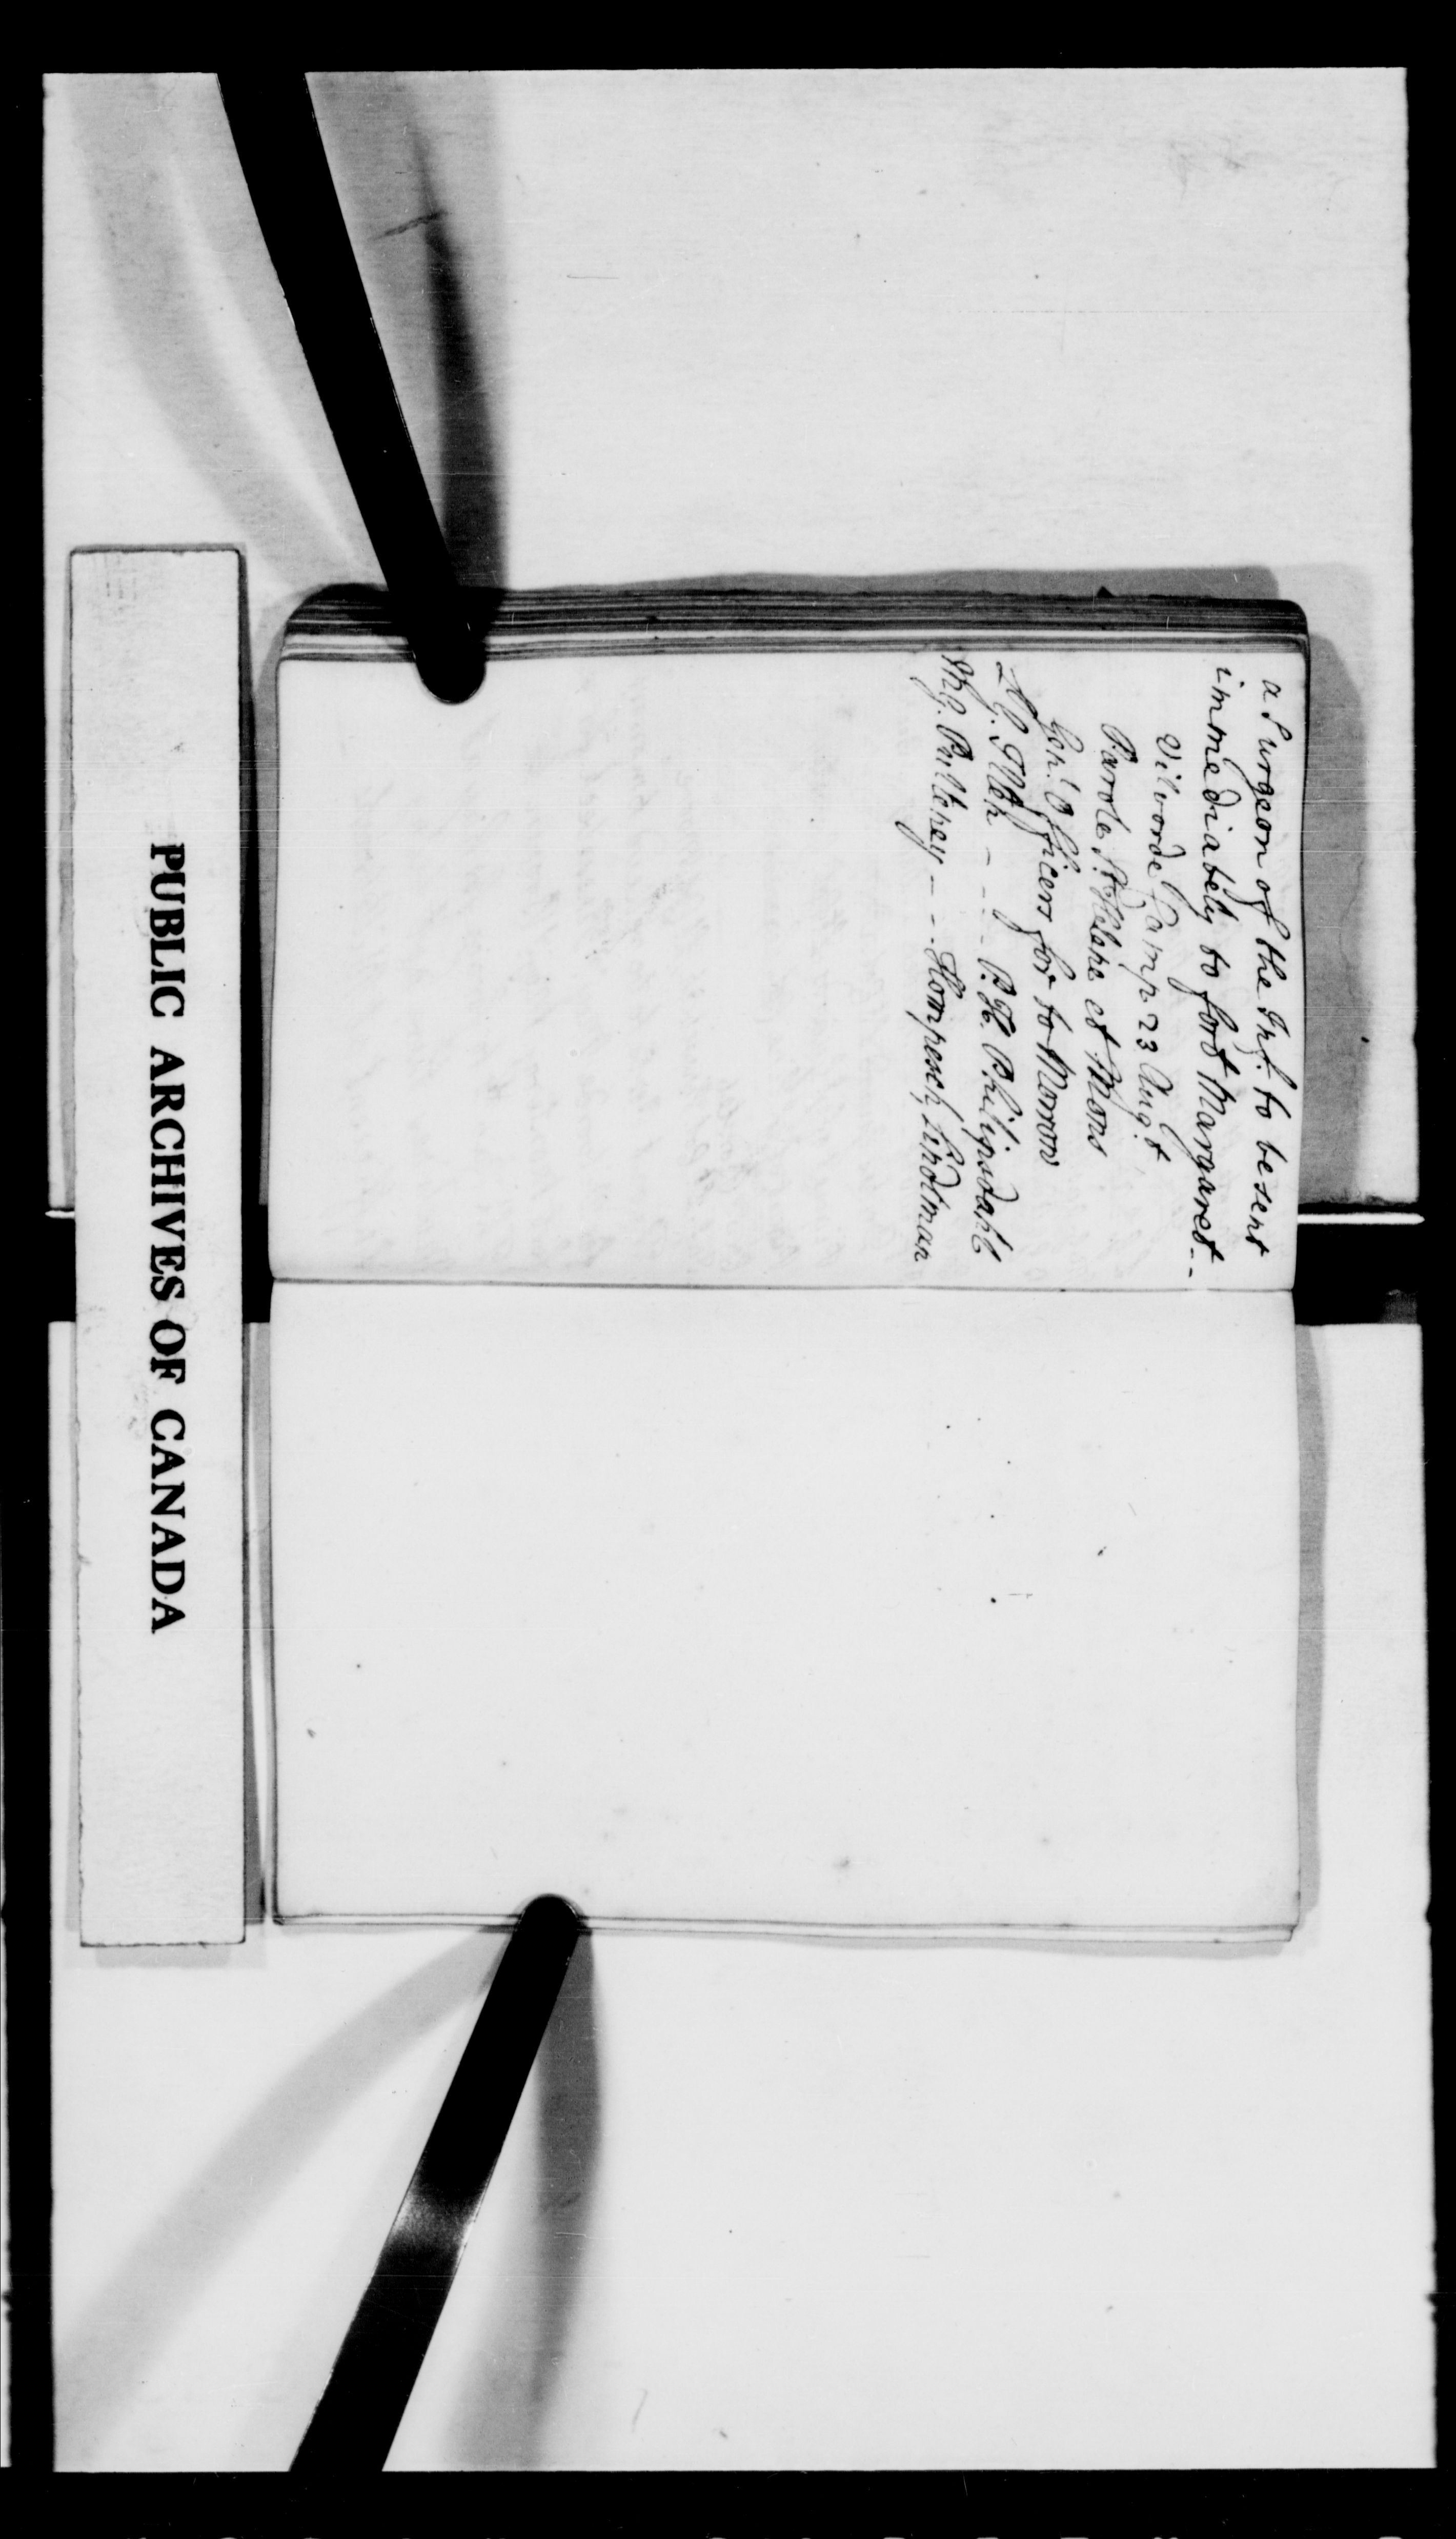 a Surgeon of the Inf. to be sent
immediately to fort Margaret--
Vilvorde Camp 23 Augt
Parole St. Helene et Mons
Genl. Officers for to Morrow
LG. - - - P. H. Philipsdahl
MG. Pulteney - - - Hompesch, Lindtman
PUBLIC ARCHIVES OF CANADA